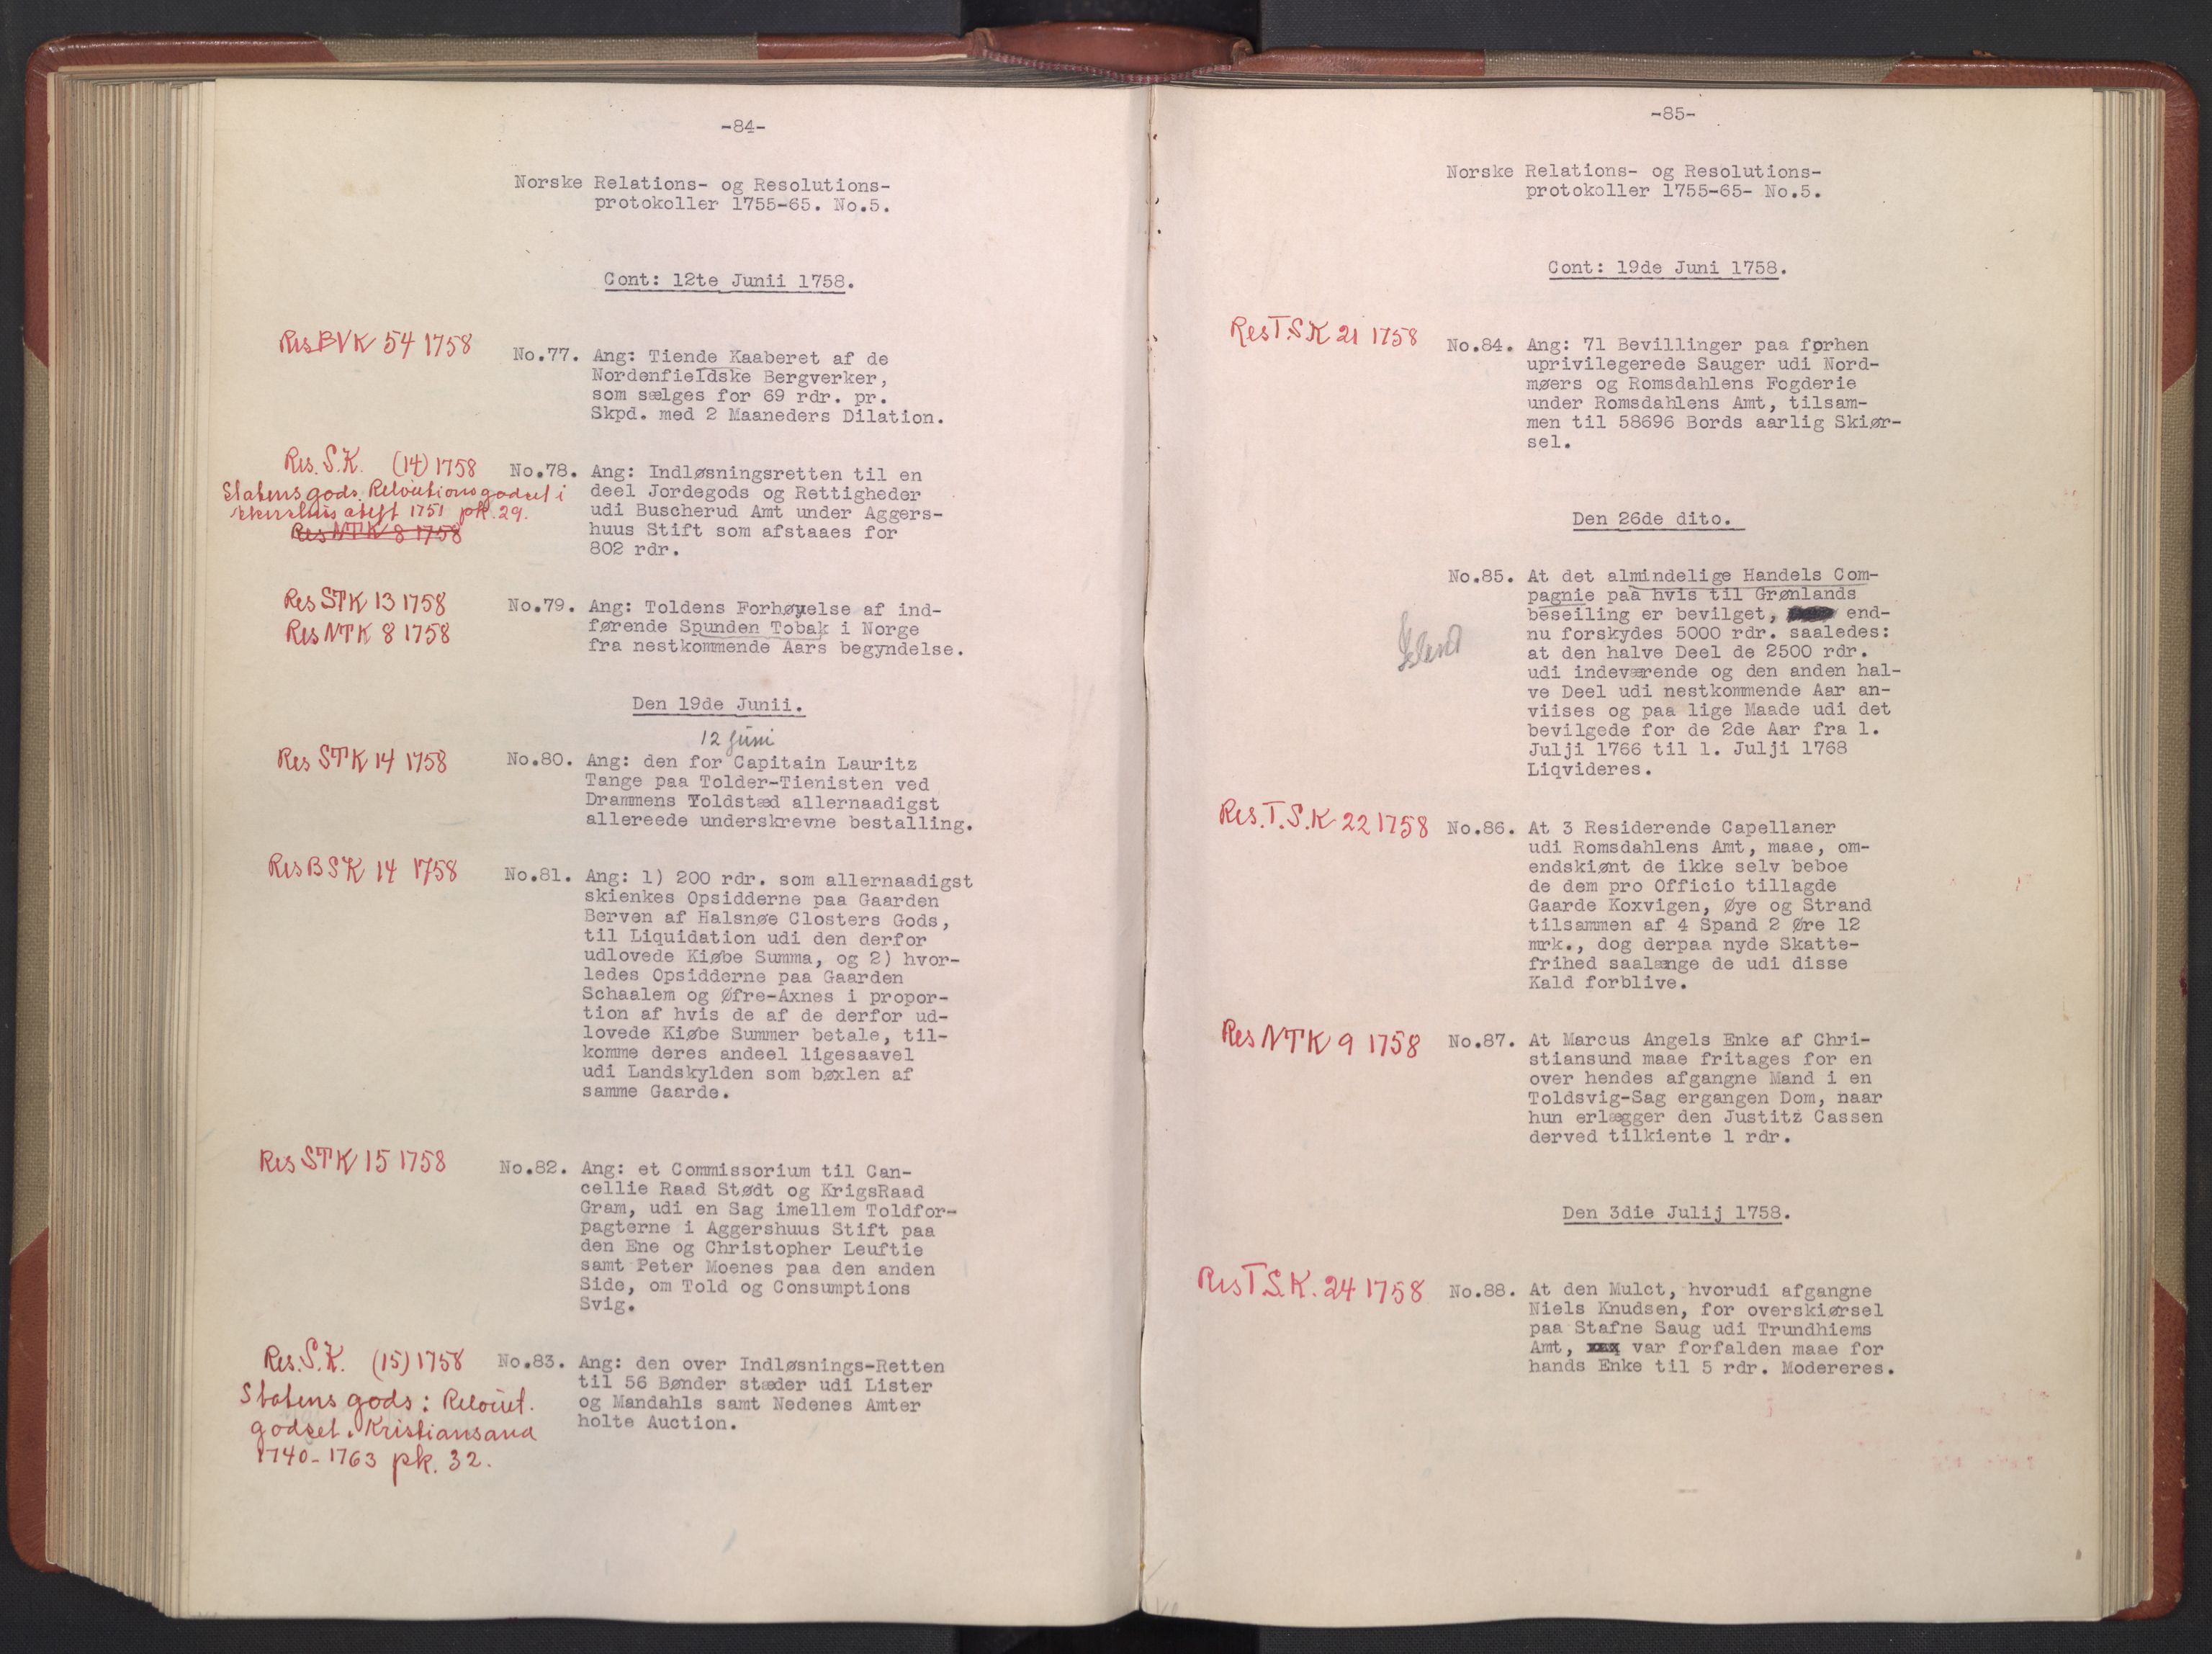 -84-
Norske Relations- og Resolutions-
protokoller 1755-65. No.5.
Cont: 12te Junii 1758.
Res BVK 54 1758
No.77. Ang: Tiende Kaaberet af de
Nordenfieldske Bergverker,
som sælges for 69 rdr. pr.
Skpd. med 2 Maaneders Dilation.
Res. S.K. (14) 1758
Statens gods. Reluitionsgodset i
stift 1751 pk. 29.
Res NTK 8 1758
No.78. Ang: Indløsningsretten til en
deel Jordegods og Rettigheder
udi Buscherud Amt under Aggers-
huus Stift som afstaaes for
802 rdr.
Res STK 13 1758
Res NTK 8 1758
No.79. Ang: Toldens Forhøyelse af ind-
førende Spunden Tobak i Norge
fra nestkommende Aars begyndelse.
Den 19de Junii.
12 Juni
Res STK 14 1758
No.80. Ang: den for Capitain Lauritz
Tange paa Tolder-Tienisten ved
Drammens Toldstæd allernaadigst
allereede underskrevne bestalling.
Res BSK 14 1758
No.81. Ang: 1) 200 rdr. som allernaadigst
skienkes Opsidderne paa Gaarden
Berven af Halsnøe Closters Gods,
til Liquidation udi den derfor
udlovede Kiøbe Summa, og 2) hvor-
ledes Opsidderne paa Gaarden
Schaalem og Øfre-Axnes i propor-
tion af hvis de af de derfor ud-
lovede Kiøbe Summer betale, til-
komme deres andeel ligesaavel
udi Landskylden som bøxlen af
samme Gaarde.
Res STK 15 1758
No.82. Ang: et Commissorium til Can-
cellie Raad Stødt og KrigsRaad
Gram, udi en Sag imellem Toldfor-
pagterne i Aggershuus Stift paa
den Ene og Christopher Leuftie
samt Peter Moenes paa den anden
Side, om Told og Consumptions
Svig.
Res. S.K. (15) 1758
Statens gods: Reluit.
godset. Kristiansand
1740-1763 pk. 32.
No.83. Ang: den over Indløsnings-Retten
til 56 Bønder stæder udi Lister
og Mandahls samt Nedenes Amter
holte Auction.
-85-
Norske Relations- og Resolutions-
protokoller 1755-65- No.5.
Cont: 19de Juni 1758.
Res T.S.K 21 1758
No.84. Ang: 71 Bevillinger paa forhen
uprivilegerede Sauger udi Nord-
møers og Romsdahlens Fogderie
under Romsdahlens Amt, tilsam-
men til 58696 Bords aarlig Skiør-
sel.
Den 26de dito.
No.85. At det almindelige Handels Com-
pagnie paa hvis til Grønlands
beseiling er bevilget, end-
nu forskydes 5000 rdr. saaledes:
at den halve Deel de 2500 rdr.
udi indeværende og den anden hal-
ve Deel udi nestkommende Aar an-
viises og paa lige Maade udi det
bevilgede for de 2de Aar fra 1.
Julji 1766 til 1. Julji 1768
Liqvideres.
Res. T.S.K 22 1758
No.86. At 3 Residerende Capellaner
udi Romsdahlens Amt, maae, om-
endskiønt de ikke selv beboe
de dem pro Officio tillagde
Gaarde Koxvigen, Øye og Strand
tilsammen af 4 Spand 2 Øre 12
mrk., dog derpaa nyde Skatte-
frihed saalænge de udi disse
Kald forblive.
Res NTK 9 1758
No.87. At Marcus Angels Enke af Chri-
stiansund maae fritages for en
over hendes afgangne Mand i en
Toldsvig-Sag ergangen Dom, naar
hun erlægger den Justitz Cassen
derved tilkiente 1 rdr.
Den 3die Julij 1758.
Res T.S.K. 24 1758
No.88. At den Mulct, hvorudi afgangne
Niels Knudsen, for overskiørsel
paa Stafne Saug udi Trundhiems
Amt, xxx var forfalden maae for
hands Enke til 5 rdr. Modereres.